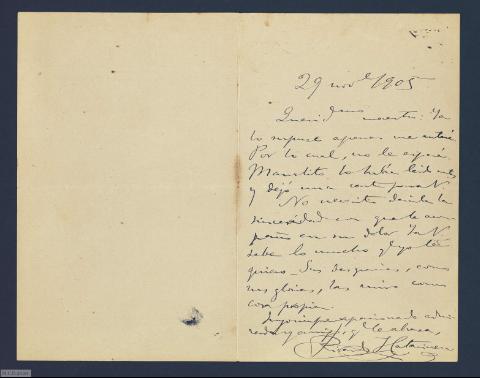 29 nov.e 1905
Querid.mo maestro: Ya
lo supuse apenas me enteré.
Por lo cual, no le esperé.
Manolito lo había leido antes,
y dejó una carta para V.
No necesito decirle la
sinceridad con que le acom
paño en su dolor. Ya V.
sabe lo mucho q. yo le
quiero. Sus desgracias, como
sus glorias, las miro como
cosa propia.
Suyo siempre apasionado admi
rador y amigo, q. le abraza,
Ricardo J. Catarineu